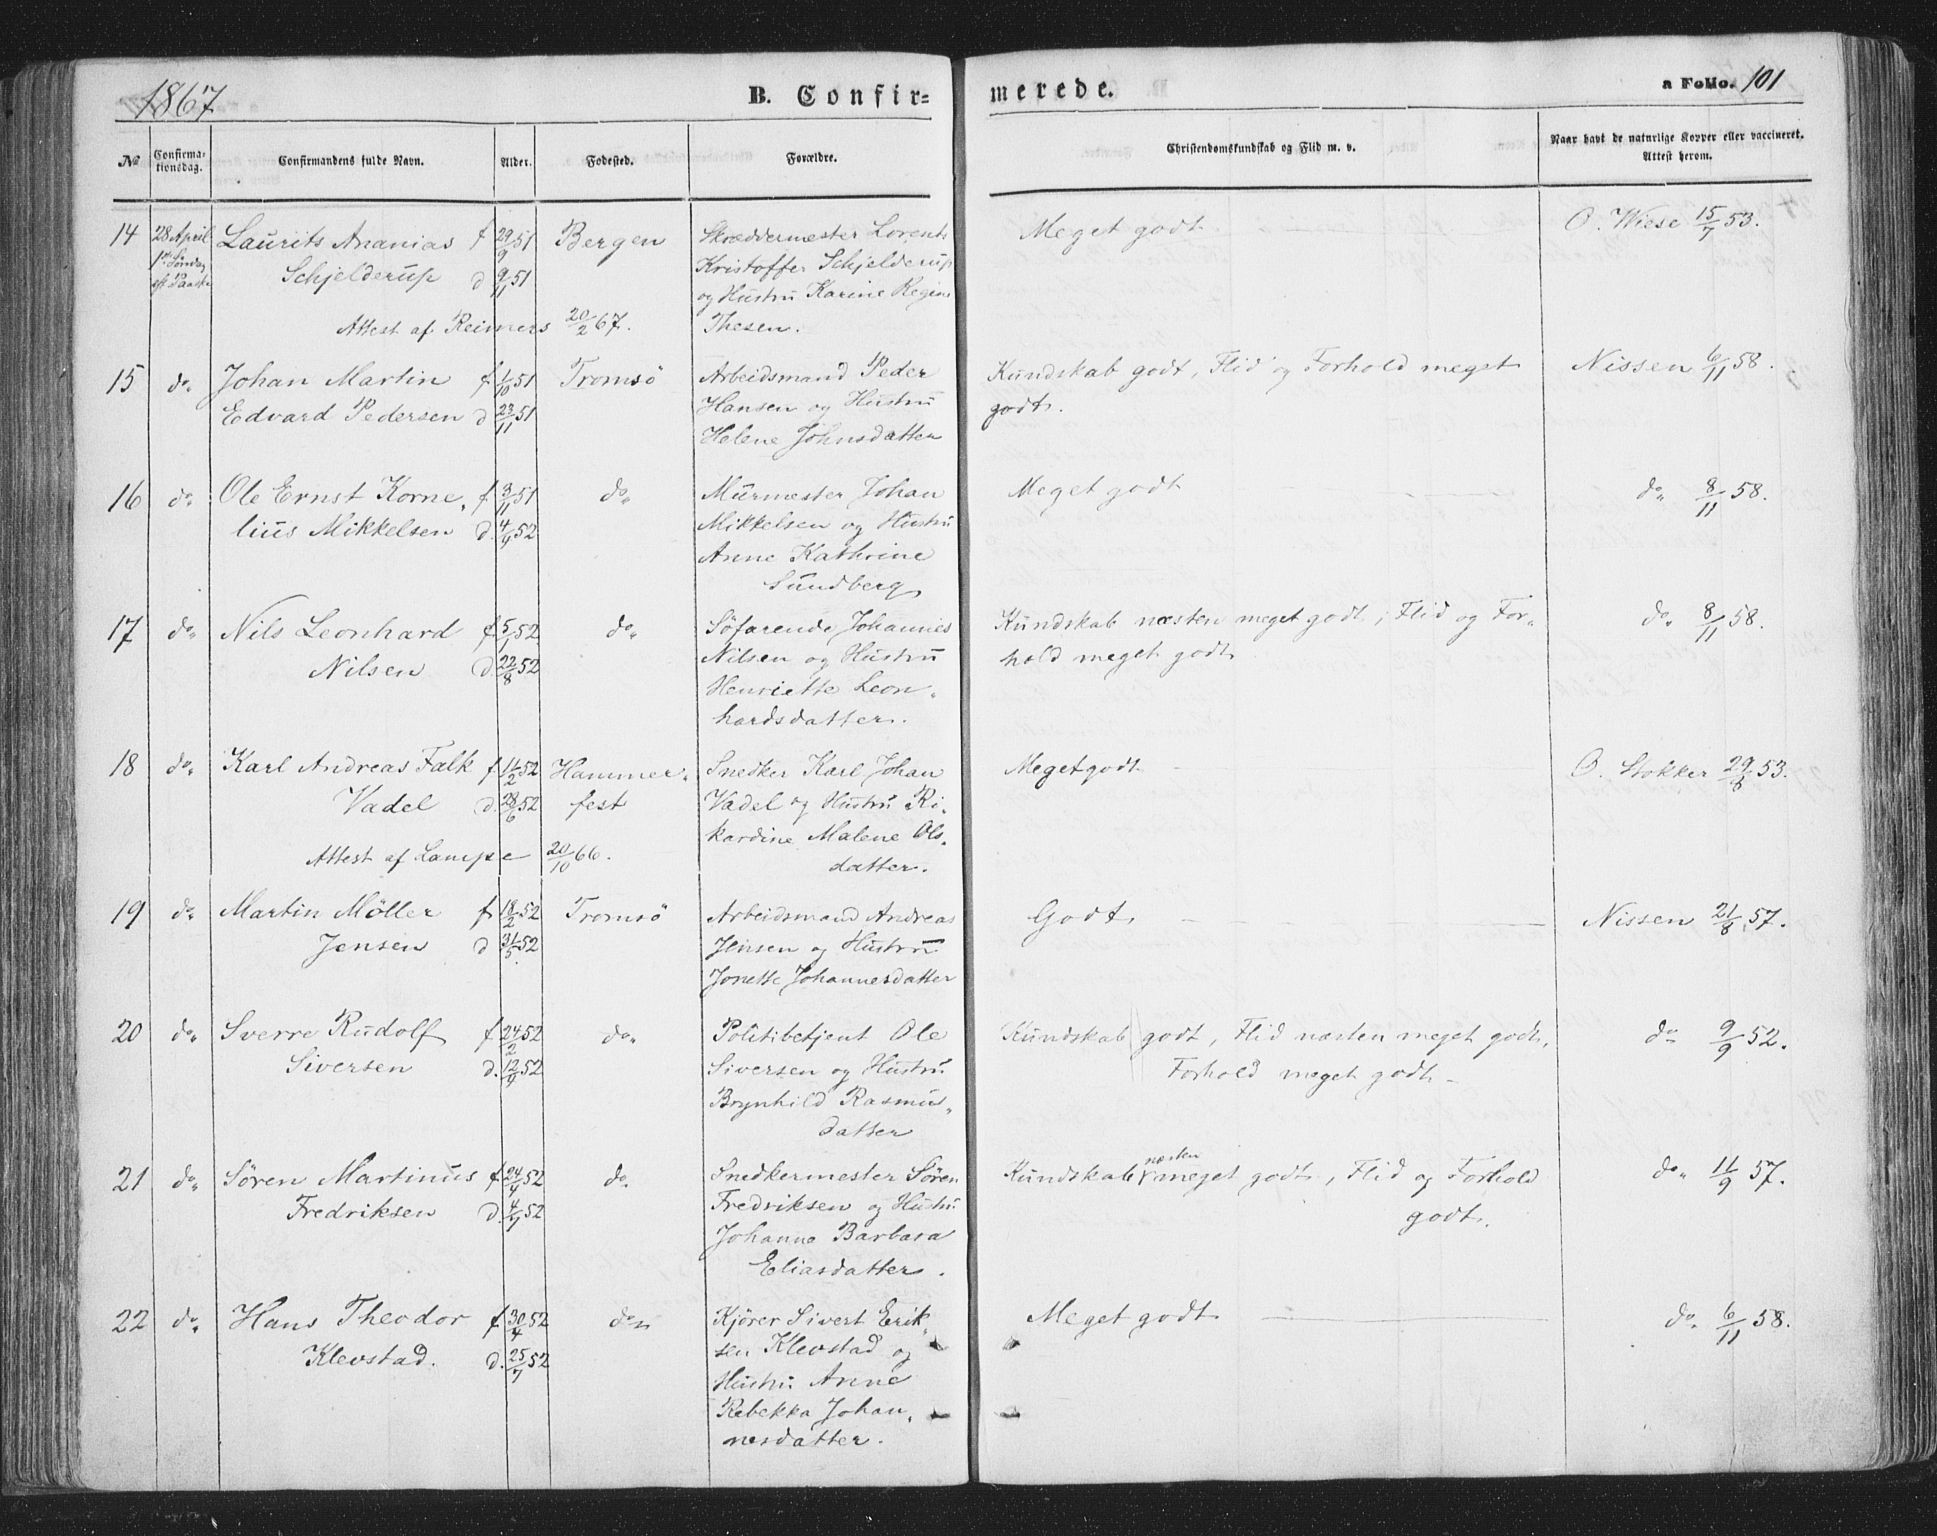 1867
B. Confir=
merede.
a Folio. 101
No
Confirma-
tionsdag.
Confirmandens fulde Navn.
Alder.
Fødested.
Forældre.
Christendomskundskab og Flid m. v.
Naar havt de naturlige Kopper eller vaccineret.
Attest herom.
14 28 April Laurits Ananias f 29/9 51 Bergen Skræddermester Lorents Meget godt O. Wiese 15/7 53.
1st Søndag Schjelderup d 9/11 51 Kristoffer Schjelderup
eft Paaske og Hustru Karine Regine
Attest af Reimers 20/2 67. Thesen.
15 do Johan Martin f 1/10 51 Tromsö Arbeidsmand Peder Kundskab godt, Flid og Forhold meget Nissen 6/11 58.
Edvard Pedersen d 23/11 51 Hansen og Hustru godt.
Helene Johnsdatter
16 do Ole Ernst Korne- f 3/11 51 do Murmester Johan Meget godt do 8/11 58.
lius Mikkelsen d. 4/4 52 Mikkelsen og Hustru
Anne Kathrine
Sundberg
17 do Nils Leonhard f. 5/1 52 do Söfarende Johannes Kundskab næsten meget godt, Flid og For- do 8/11 58.
Nilsen d. 22/8 52 Nilsen og Hustru hold meget godt
Henriette Leon-
hardsdatter.
18 do Karl Andreas Falk f 11/2 52 Hammer- Snedker Karl Johan Meget godt O. Stokker 29/8 53.
Vadel d. 28/6 52 fest Vadel og Hustru Ri-
kardine Malene Ols-
Attest af Lampe 20/10 66. datter.
19 do Martin Möller f 18/2 52 Tromsö Arbeidsmand Andreas Godt Nissen 21/8 57.
Jensen d 31/5 52 Jensen og Hustru
Jonette Johannesdatter
20 do Sverre Rudolf f 24/2 52 do Politibetjent Ole Kundskab godt, Flid næsten meget godt, do 9/9 52.
Siversen d. 12/4 52 Siversen og Hustru Forhold meget godt
Brynhild Rasmus-
datter
21 do Sören Martinus f 24/4 52 do Snedkermester Sören Kundskab næsten meget godt, Flid og Forhold do 11/9 57.
Fredriksen d. 4/7 52 Fredriksen og Hustru godt.
Johanna Barbara
Eliasdatter.
22 do Hans Theodor f 30/4 52 do Kjörer Sivert Erik- Meget godt do 6/11 58.
Klevstad. d. 25/7 52 sen Klevstad og
Hustru Anne
Rebekka Johan-
nesdatter.